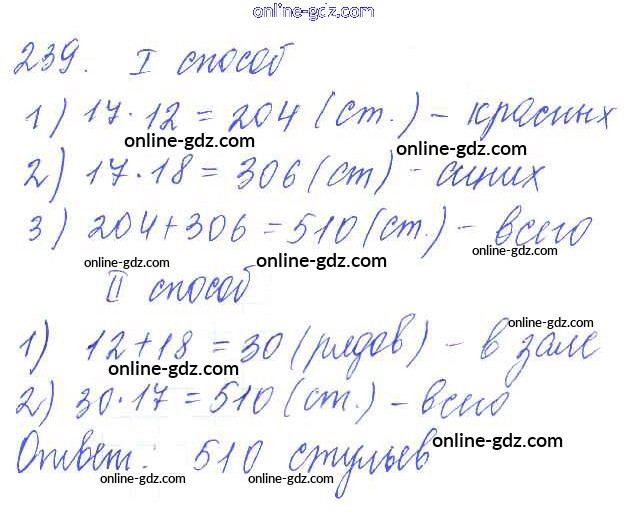 online-gdz.com
239. I способ
1) 17·12 = 204 (ст.) – красных
online-gdz.com online-gdz.com
2) 17·18 = 306 (ст) - синих
online-gdz.com
3) 204 + 306 = 510 (ст.) – всего
online-gdz.com online-gdz.com online-gdz.com
II способ
online-gdz.com
1) 12 + 18 = 30 (рядов) – в зале
online-gdz.com
2) 30·17 = 510 (ст.) – всего
online-gdz.com
Ответ: 510 стульев
online-gdz.com
online-gdz.com online-gdz.com